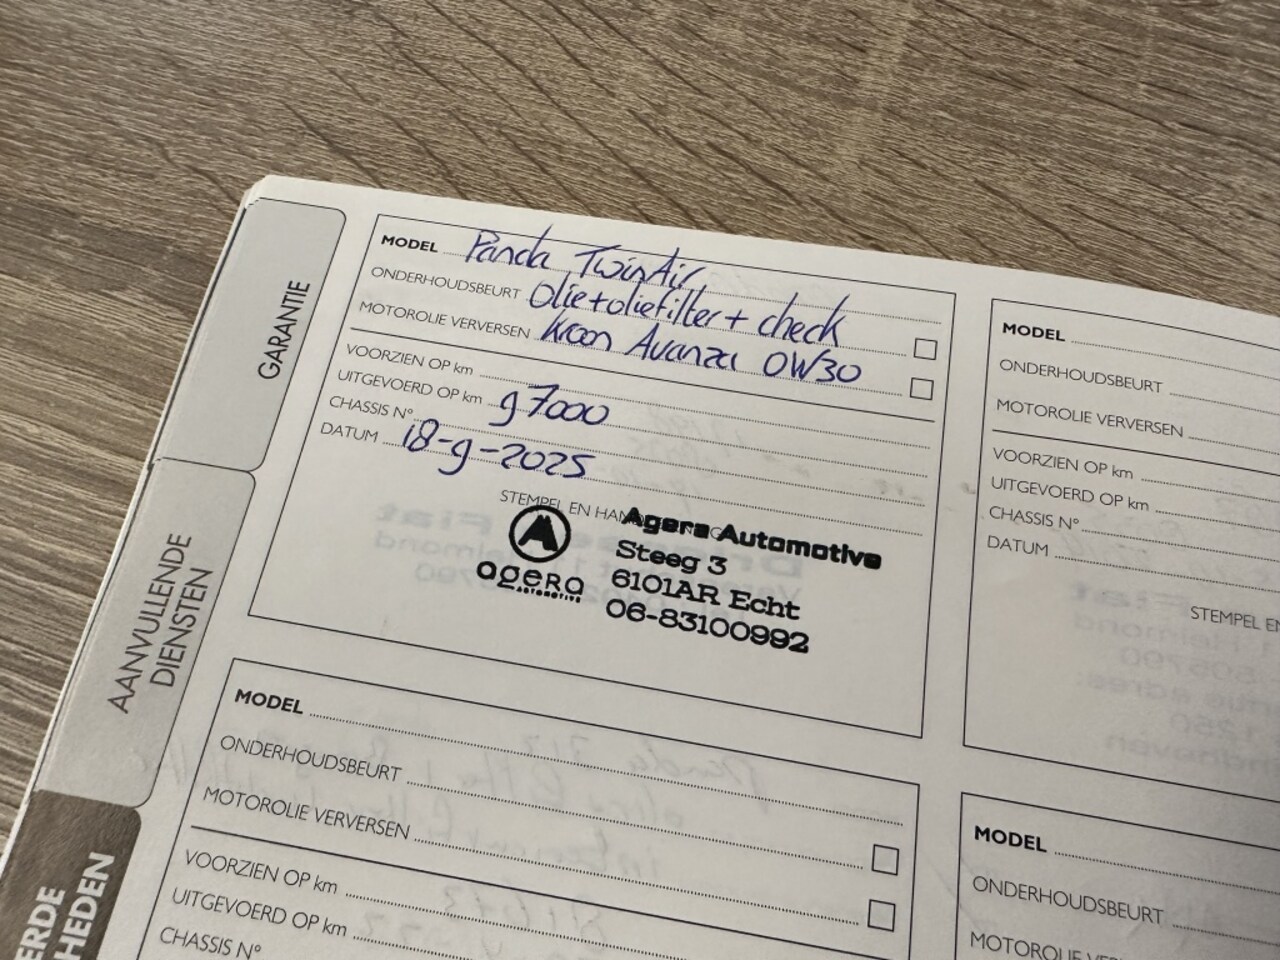 GARANTIE
AANVULLENDE
DIENSTEN
ERDE
HEDEN
MODEL Panda TwinAir
ONDERHOUDSBEURT Olie+oliefilter+ check
MOTOROLIE VERVERSEN Kroon Avanza 0W30
VOORZIEN OP km
UITGEVOERD OP km 97000
CHASSIS N°
DATUM 18-9-2025
STEMPEL EN HAN
agera
AUTOMOTIVE
Agera Automotive
Steeg 3
6101AR Echt
06-83100992
MODEL
ONDERHOUDSBEURT
MOTOROLIE VERVERSEN
VOORZIEN OP km
UITGEVOERD OP km
CHASSIS N°
DATUM
STEMPEL EN
MODEL
ONDERHOUDSBEURT
MOTOROLIE VERVERSEN
VOORZIEN OP km
UITGEVOERD OP km
CHASSIS N°
MODEL
ONDERHOUDSBEURT
MOTOROLIE VER